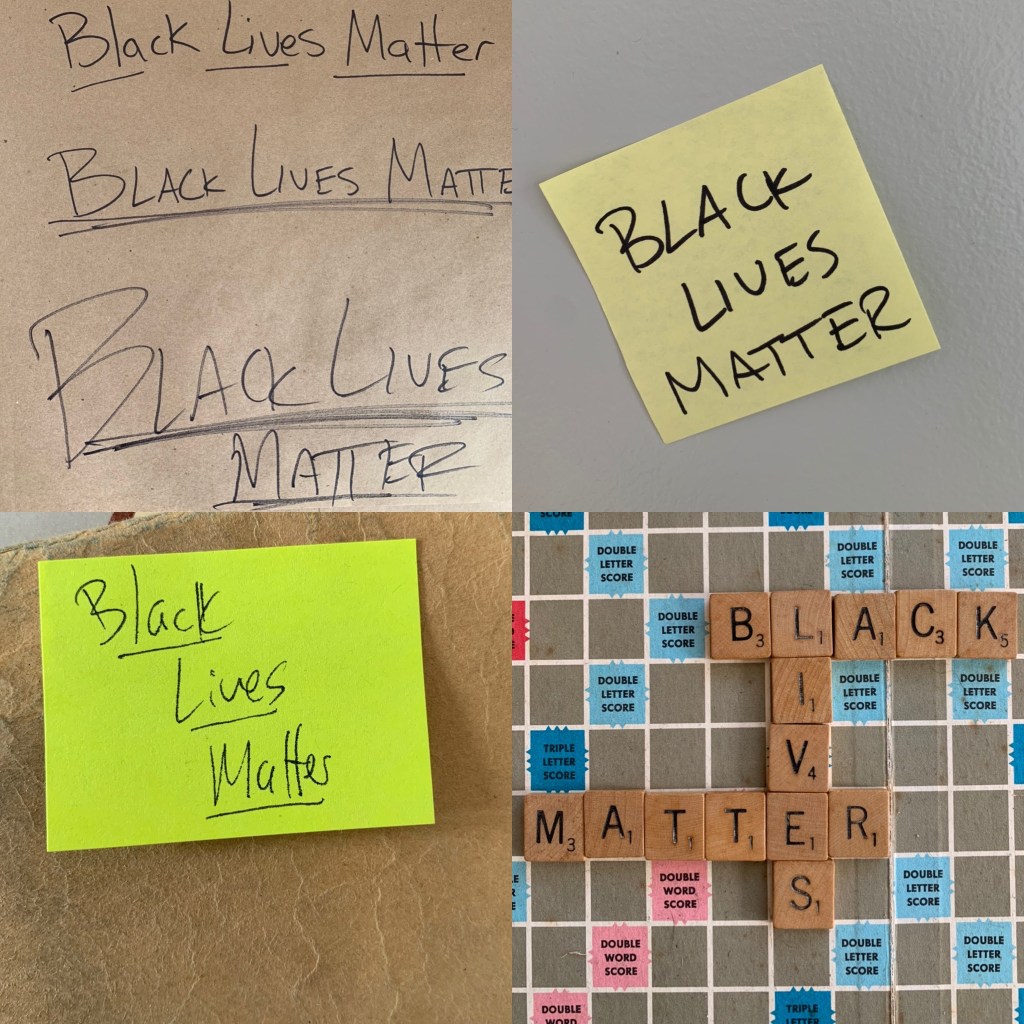 Black Lives Matter
BLACK LIVES MATTE
BLACK LIVES
MATTER
BLACK
LIVES
MATTER
Black
Lives
Matter
SCORE
SCORE
DOUBLE
LETTER
SCORE
DOUBLE
LETTER
SCORE
DOUBLE
LETTER
SCORE
DOUBLE
LETTER
SCORE
B3 L1 A1 C3 K5
I1
V4
M3 A1 T1 T1 E1 R1
S1
DOUBLE
LETTER
SCORE
DOUBLE
LETTER
SCORE
DOUBLE
LETTER
SCORE
TRIPLE
LETTER
SCORE
DOUBLE
WORD
SCORE
DOUBLE
LETTER
SCORE
DOUBLE
WORD
SCORE
DOUBLE
LETTER
SCORE
DOUBLE
LETTER
SCORE
DOUBLE
WORD
TRIPLE
LETTER